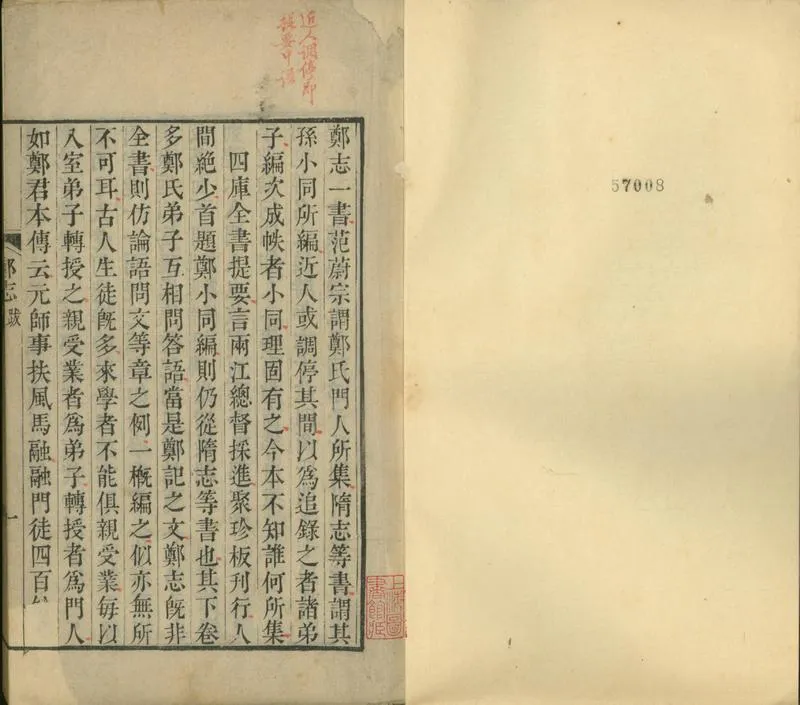 57008
近人調停即
提要中語
鄭志一書范蔚宗謂鄭氏門人所集隋志等書謂其
孫小同所編近人或調停其間以爲追錄之者諸弟
子編次成帙者小同理固有之今本不知誰何所集
四庫全書提要言兩江總督採進聚珍板刊行人
間絶少首題鄭小同編則仍從隋志等書也其下卷
多鄭氏弟子互相問答語當是鄭記之文鄭志旣非
全書則仿論語問文等章之例一槪編之似亦無所
不可耳古人生徒旣多來學者不能俱親受業每以
入室弟子轉授之親受業者爲弟子轉授者爲門人
如鄭君本傳云元師事扶風馬融融門徒四百
鄭志 跋 一
上海圖
書館藏